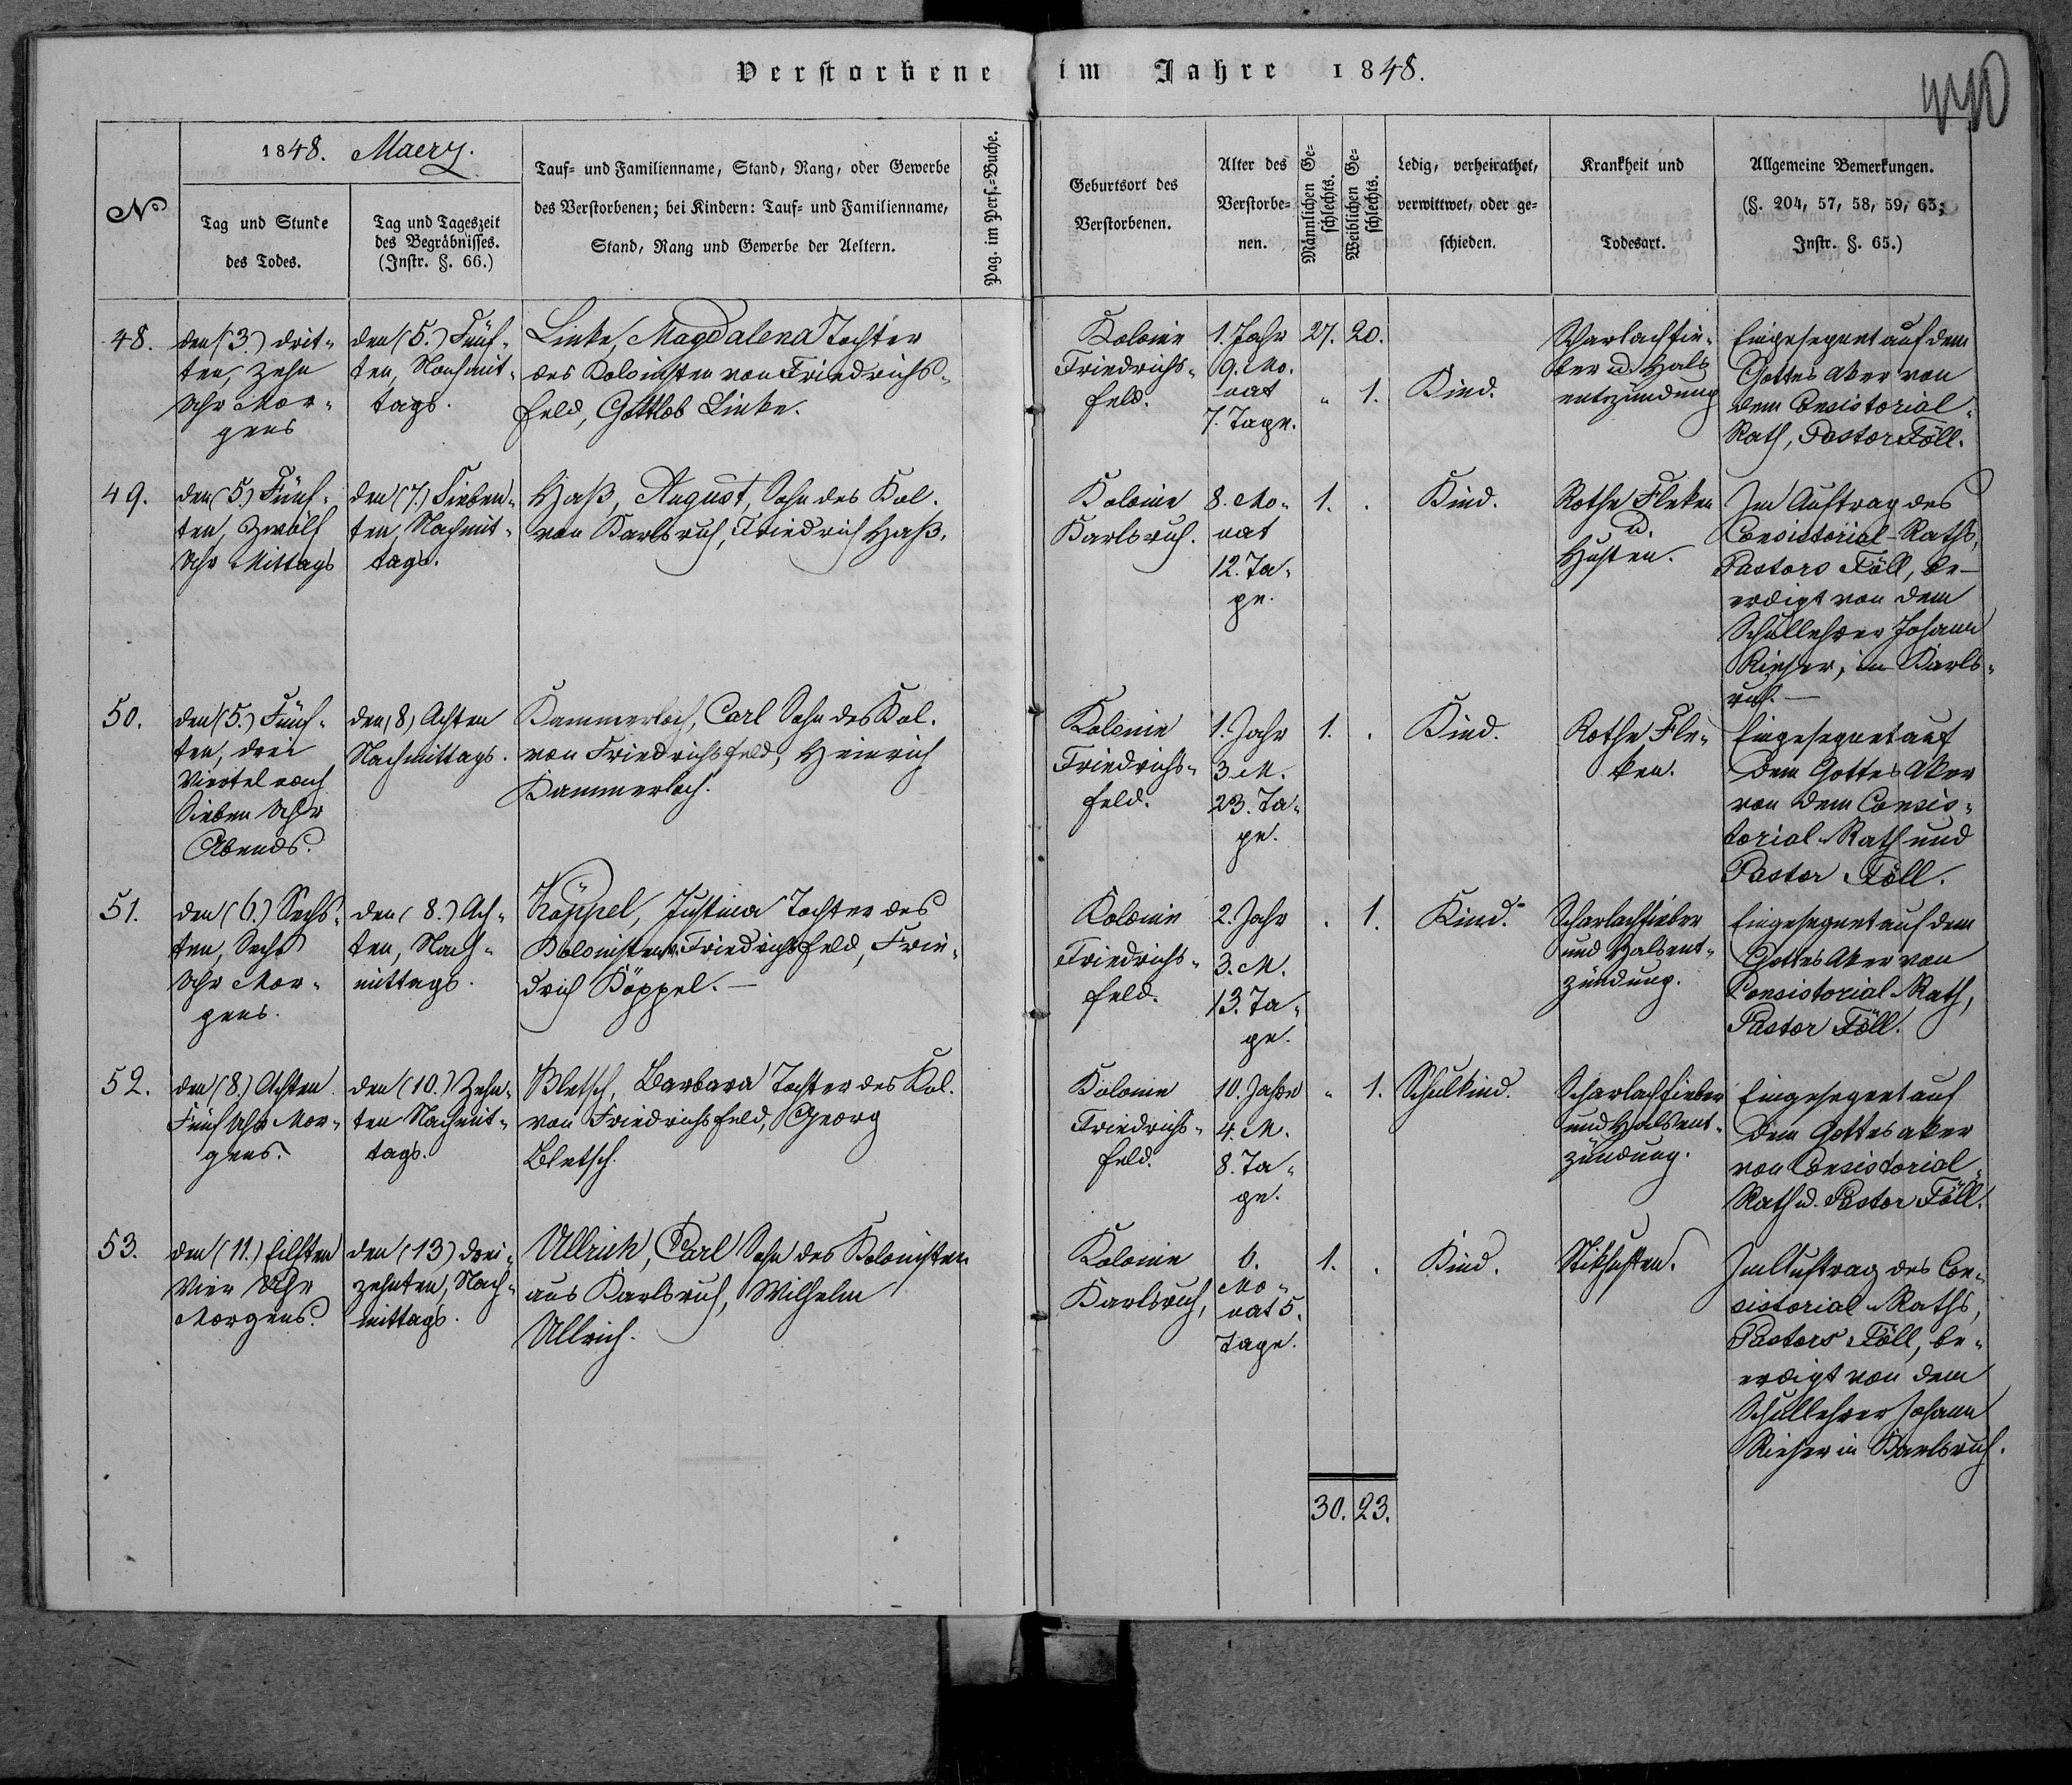 Verstorbene im Jahre 1848.
No
1848. Maerz.
Tag und Stunde
des Todes.
Tag und Tageszeit
des Begräbnisses.
(Instr. §. 66.)
Tauf- und Familienname, Stand, Rang, oder Gewerbe
des Verstorbenen; bei Kindern: Tauf- und Familienname,
Stand, Rang und Gewerbe der Aeltern.
Pag. im Pers.-Buche.
Geburtsort des
Verstorbenen.
Alter des
Verstorbe-
nen.
Männlichen Ge-
schlechts.
Weiblichen Ge-
schlechts.
Ledig, verheirathet,
verwittwet, oder ge-
schieden.
Krankheit und
Todesart.
Allgemeine Bemerkungen.
(§. 204, 57, 58, 59, 63;
Instr. §. 65.)
48.
den (3.) drit-
ten, zehn
Uhr Mor-
gens
den (5.) Fünf-
ten, Nachmit-
tags.
Linke, Magdalena Tochter
des Kolonisten von Friedrichs-
feld, Gottlob Linke.
Kolonie
Friedrichs-
feld.
1. Jahr
9. Mo-
nat
7. Tage.
27. 20.
" 1.
Kind.
Scharlachfie-
ber u. Hals
entzündung
Eingesegnet auf dem
Gottes Aker von
dem Consistorial-
Rath, Pastor Föll.
49.
den (5.) Fünf-
ten, Zwölf
Uhr Mittags
den (7.) Sieben-
ten, Nachmit-
tags.
Haß, August, Sohn des Kol.
von Karlsruh, Friedrich Haß.
Kolonie
Karlsruh.
8. Mo-
nat
12. Ta-
ge.
1. .
Kind.
Rothe Fleken
u.
Husten.
Im Auftrag des
Consistorial-Raths,
Pastors Föll, be-
erdigt von dem
Schullehrer Johann
Rieser, in Karls-
ruh. —
50.
den (5.) Fünf-
ten, drei
Viertel nach
Sieben Uhr
Abends.
den (8) Achten
Nachmittags.
Kammerloch, Carl Sohn des Kol.
von Friedrichsfeld, Heinrich
Kammerloch.
Kolonie
Friedrichs-
feld.
1. Jahr
3. M.
23. Ta-
ge.
1. .
Kind.
Rothe Fle-
ken.
Eingesegnet auf
dem Gottes Aker
von dem Consis-
torial-Rath und
Pastor Föll.
51.
den (6.) Sechs-
ten, Sechs
Uhr Mor-
gens.
den (8.) Ach-
ten, Nach-
mittags.
Köppel, Justina Tochter des
Kolonisten v. Friedrichsfeld, Frie-
drich Köppel. —
Kolonie
Friedrichs-
feld.
2. Jahr
3. M.
13. Ta-
ge.
. 1.
Kind.
Scharlachfieber
und Halsent-
zündung.
Eingesegnet auf dem
Gottes Aker von
Consistorial-Rath,
Pastor Föll.
52.
den (8.) Achten
Fünf Uhr Mor-
gens.
den (10.) Zehn-
ten Nachmit-
tags.
Bletsch, Barbara Tochter des Kol.
von Friedrichsfeld, Georg
Bletsch.
Kolonie
Friedrichs-
feld.
10. Jahre
4. M.
8. Ta-
ge.
" 1.
Schulkind.
Scharlachfieber
und Halsent-
zündung.
Eingesegnet auf
dem Gottesaker
von Consistorial-
Rath u. Pastor Föll.
53.
den (11.) Eilften
Vier Uhr
Morgens.
den (13) drei-
zehnten, Nach-
mittags.
Ullrich, Carl Sohn des Kolonisten
aus Karlsruh, Wilhelm
Ullrich.
Kolonie
Karlsruh,
6.
Mo-
nat 5.
Tage.
1. .
Kind.
Stikhusten.
Im Auftrag des Con-
sistorial-Raths,
Pastors Föll, be-
erdigt von dem
Schullehrer Johann
Rieser in Karlsruh.
30. 23.